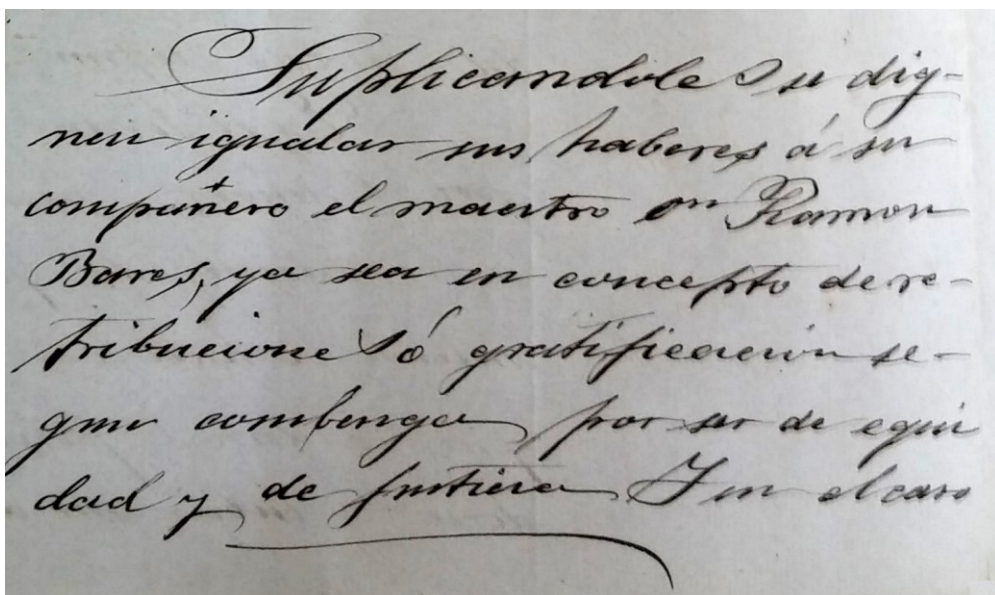 Suplicandole se dig-
nen igualar sus haberes á su
compañero el maestro Dn Ramon
Bares, ya sea en concepto de re-
tribucione só gratificacion se-
gun combenga por ser de equi
dad y de justicia Y en el caso